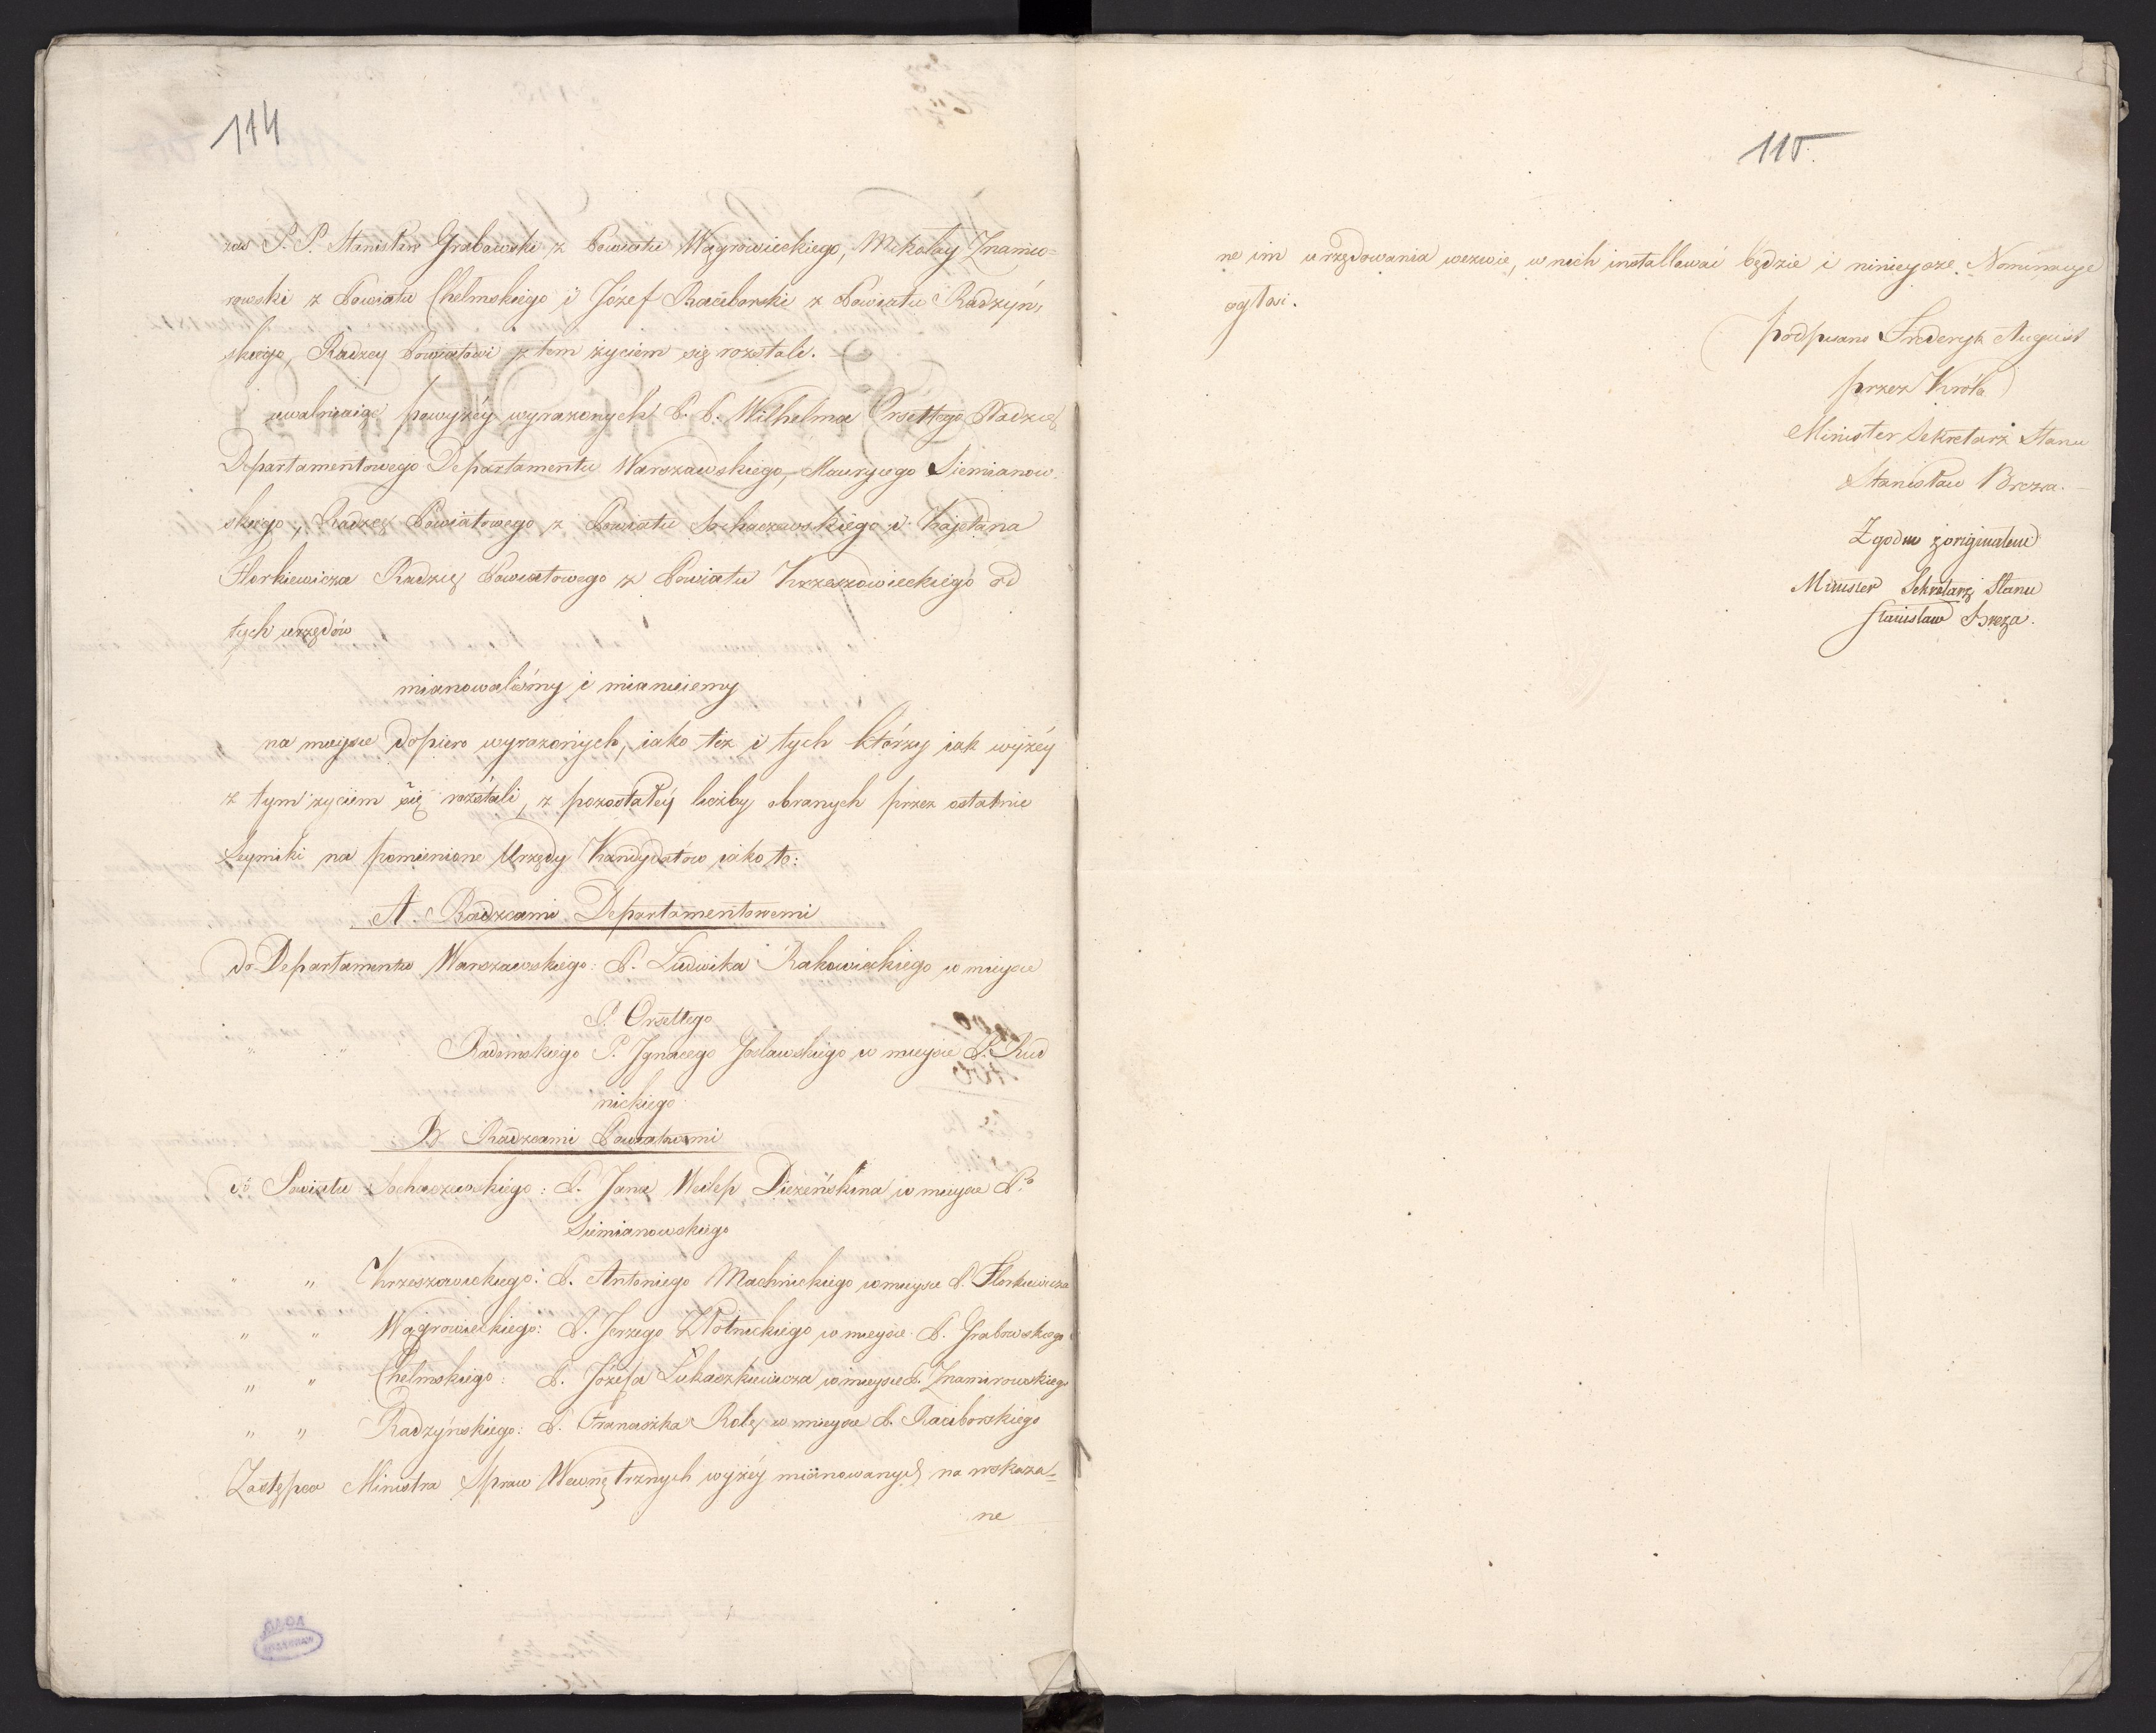 114
zaś P. P. Stanisław Grabowski z Powiatu Wągrowieckiego, Mikołay Znamie=
rowski z Powiatu Chełmskiego i Józef Raciborski z Powiatu Radzyń,
skiego, Radzcy Powiatowi z tem życiem się rozstali.
uwalniaiąc powyżéy wyrazonych P. P. Wilhelma Orsettego Radzcę
Departamentowego Departamentu Warszawskiego, Maurycego Siemianow
skiego, Radzcę Powiatowego z Powiatu Sochaczewskiego i Kajetana
Florkiewicza Radzcę Powiatowego z Powiatu Krzeszowieckiego od
tych urzędów
mianowaliśmy i mianuiemy
na mieysce dopiero wyrazonych, iako téz i tych którzy iak wyżéy
z tym zyciem się rozstali, z pozostałéy liczby obranych przez ostatnie
Seymiki na pomienione Urzędy Kandydatów iako to:
A. Radzcami Departamentowemi
do Departamentu Warszawskiego: P. Ludwika Rakowieckiego w mieysce
P. Orsettego
" " Radomskiego P. Jgnacego Josławskiego w mieysce P. Rud
nickiego
B Radzcami Powiatowemi
do Powiatu Sochaczewskiego: P. Jana Nec̃lep w mieysce P.
Siemianowskiego
" " Krzeszowickiego: P. Antoniego Machnickiego w mieysce P. Florkiewicza
" " Wągrowieckiego: P. Jerzego Złotnickiego w mieysce P. Grabowskiego
" " Chełmskiego: P. Józefa Łukaszkiewicza w mieysce P. Znamirowskiego
" " Radzyńskiego: P. Franciszka Rolę w mieysce P. Raciborskiego
Zastępca Ministra Spraw Wewnętrznych wyżéy mianowanych na wskaza=
ne
115.
ne im urzędowania wezwie, w nich installować będzie i ninieysze Nominacye
ogłosi.
(podpisano Frederyk August
przez Króla)
Minister Sekretarz Stanu
Stanisław Breza.
Zgodno z originałem
Minister Sekretarz Stanu
Stanisław Breza.